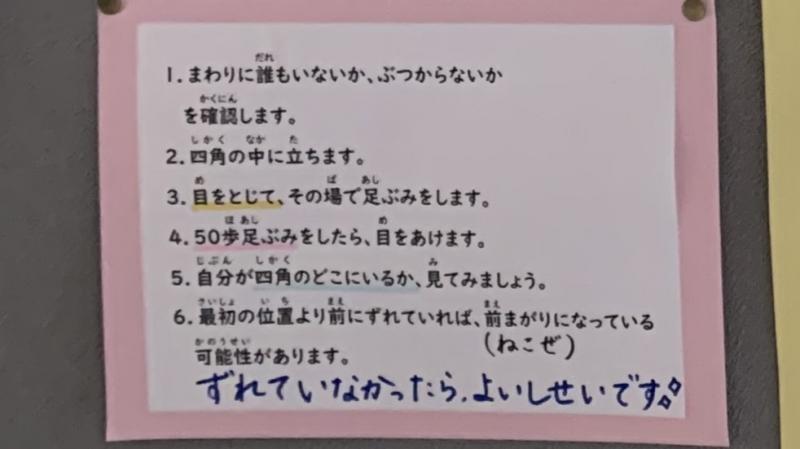 1.まわりに誰もいないか、ぶつからないか
を確認します。
2.四角の中に立ちます。
3.目をとじて、その場で足ぶみをします。
4.50歩足ぶみをしたら、目をあけます。
5.自分が四角のどこにいるか、見てみましょう。
6.最初の位置より前にずれていれば、前まがりになっている
(ねこぜ)
可能性があります。
ずれていなかったら、よいしせいです